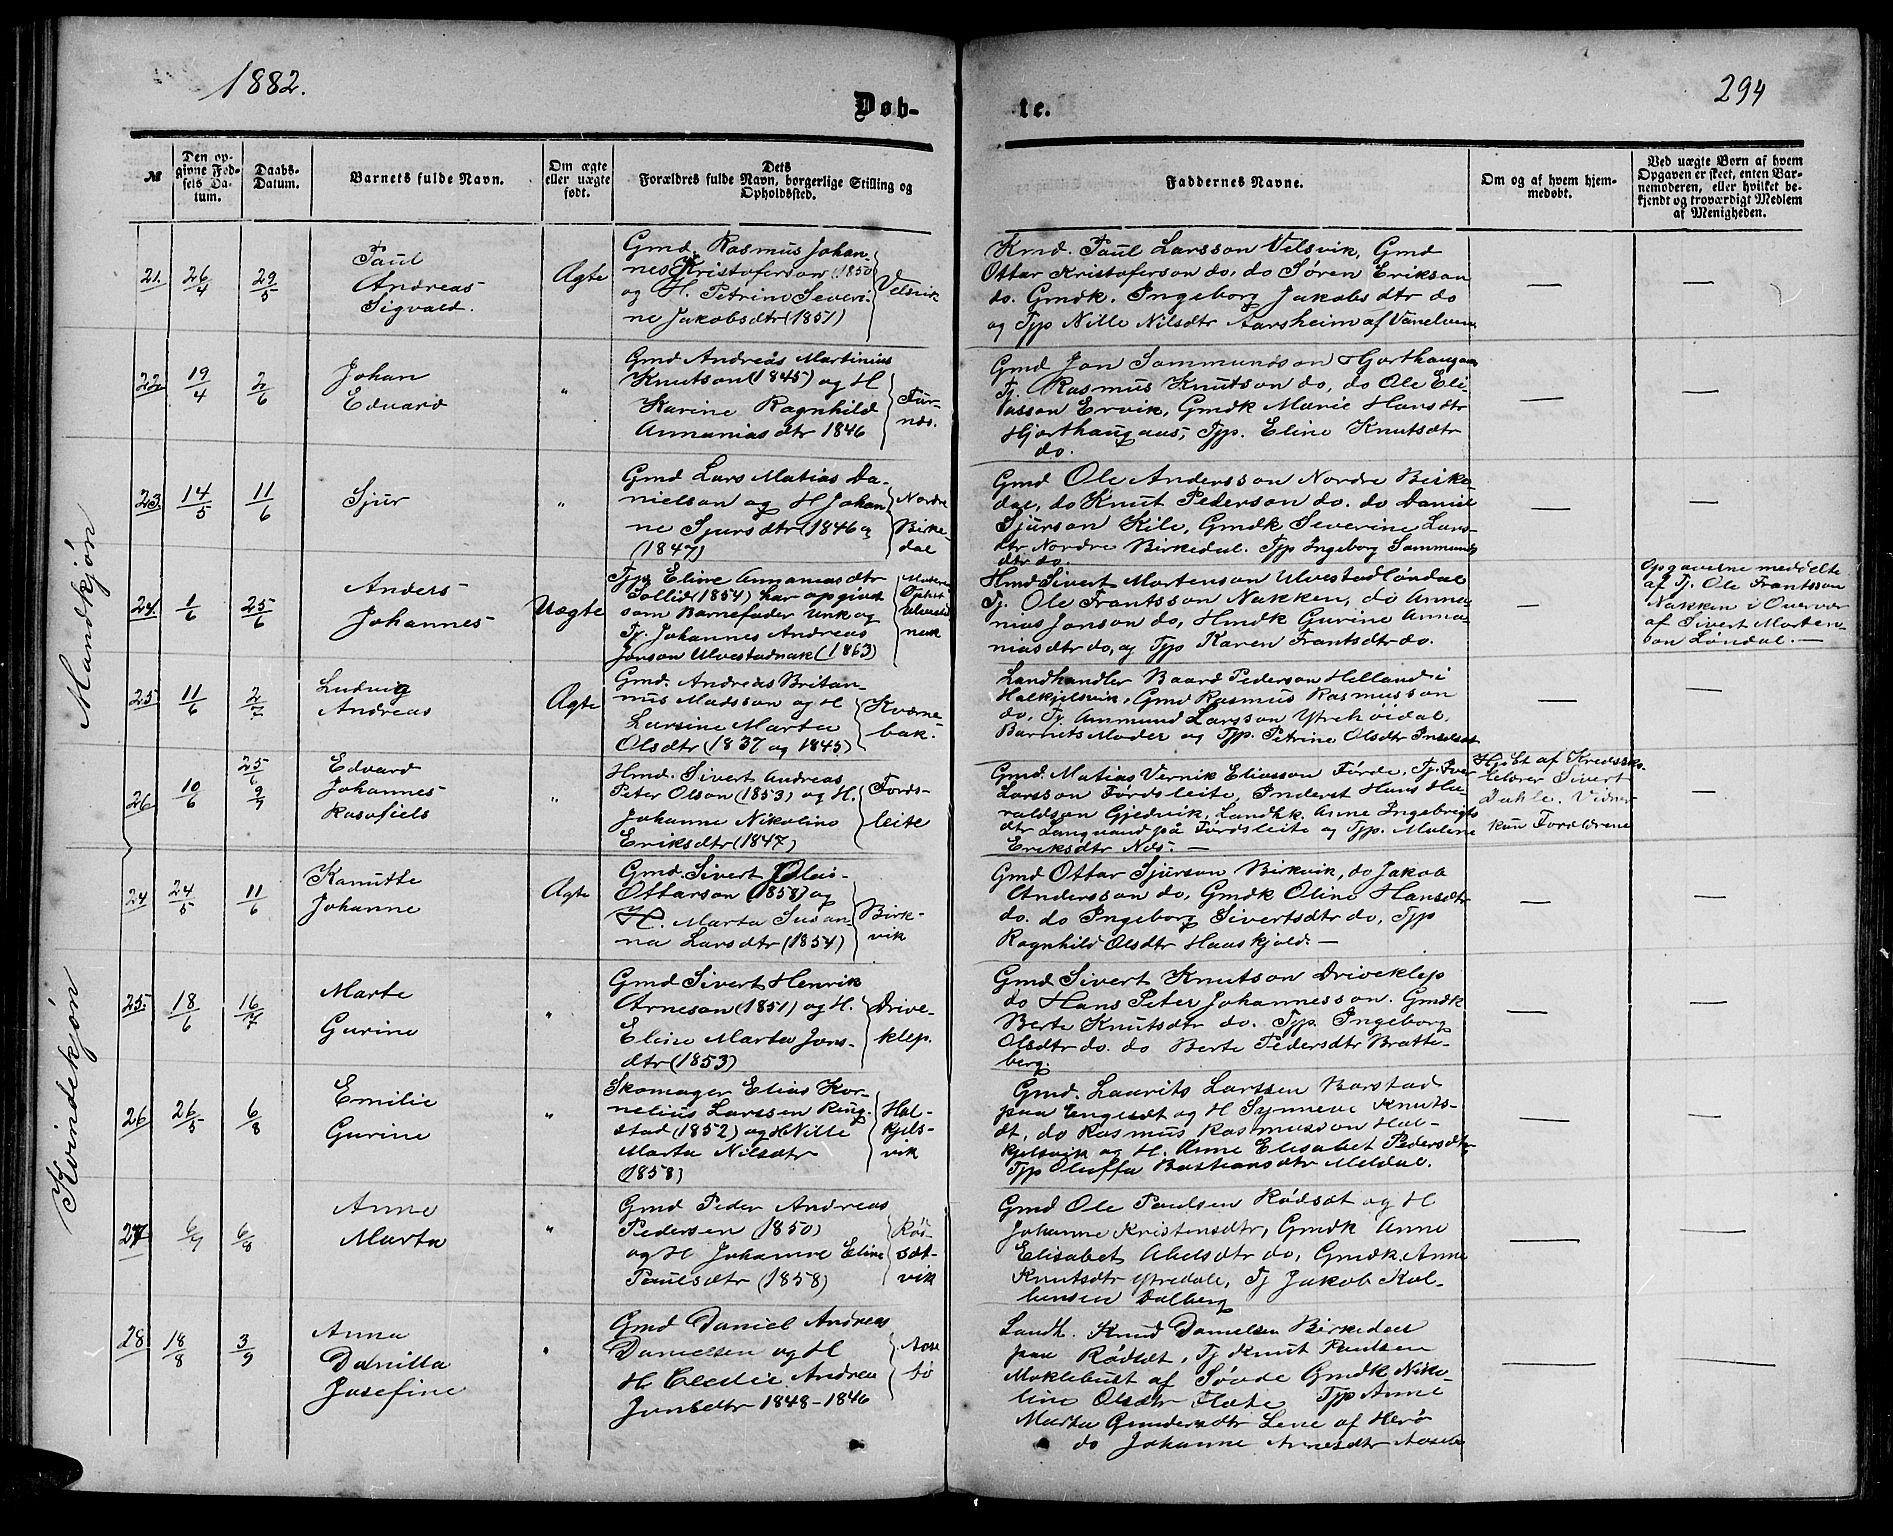 1882.
294
Døb-
te.
№
Den op-
givne Fød-
sels Da-
tum.
Daabs-
Datum.
Barnets fulde Navn.
Om ægte
eller uægte
født.
Dets
Forældres fulde Navn, borgerlige Stilling og
Opholdssted.
Faddernes Navne.
Om og af hvem hjem-
medøbt.
Ved uægte Børn af hvem
Opgaven er skeet, enten Bar-
nemoderen, eller hvilket be-
kjendt og troværdigt Medlem
af Menigheden.
Mandkjøn
21. 26/4 29/5
Paul
Andreas
Sigvald.
Ægte
Gmd. Rasmus Johan-
nes Kristoferson (1850
og H. Petrine Severi-
ne Jakobsdtr (1851)
Velsvik
Kmd. Paul Larsson Velsvik, Gmd
Ottar Kristoferson do, do Søren Erikson
do. Gmdk. Ingeborg Jakobsdtr do
og Tjp Nille Nilsdtr Aarsheim af Vanelven
— —
22. 19/4 2/6
Johan
Edvard
"
Gmd Andreas Martinius
Knutson (1845) og H
Karine Ragnhild
Annaniasdtr 1846
Für-
nes.
Gmd Jon Sammundson Hjorthaugaas
Tj. Rasmus Knutson do, do Ole Eli-
asson Ervik, Gmdk Marie Hansdtr
Hjorthaugaas, Tjp. Eline Knutsdtr
do.
— —
23. 14/5 11/6
Sjur
"
Gmd Lars Matias Da-
nielson og H Johan
ne Sjursdtr (1846 og
(1847)
Nordre
Birke-
dal
Gmd Ole Andersson Nordre Birke-
dal, do Knut Pederson do. do Daniel
Sjurson Kile, Gmdk Severine Lars-
dtr Nordre Birkedal. Tjp Ingeborg Sammunds
dtr do.
— —
24. 1/6 25/6
Anders
Johannes
Uægte
Tjp Eline Annaniasdtr
Follid (1854) har opgivet
som Barnefader Unk og
Tj. Johannes Andreas
Jonson Ulvestadnak (1863)
Moderens
Ophst
Ulvestad
nak
Hmd Sivert Mortenson Ulvestad Løndal
Tj. Ole Frantsson Nakken, do Anna-
nias Jonson do, Hmdk Gurine Anna-
niasdtr do, og Tjp Karen Frantsdtr do.
—
Opgaverne meddelte
af Tj. Ole Frantsson
Nakken i Overvær
af Sivert Morten-
son Løndal. —
25. 11/6 2/7
Ludvig
Andreas
Ægte
Gmd. Andreas Britan-
nus Madsson og H
Larsine Marta
Olsdtr (1837 og 1845)
Kvæne-
bak.
Landhandler Baard Pederson Helland i
Halkjelsvik, Gmd Rasmus Rasmusson
do, Tj. Ammund Larsson Ytrehøidal.
Barnets Moder og Tjp. Petrine Olsdtr
— —
26. 10/6 25/6 9/7
Edvard
Johannes
Rasofiels
"
Hmd. Sivert Andreas
Peter Olson (1853) og H.
Johanne Nikoline
Eriksdtr (1847)
Førds-
leite
Gmd. Matias Vernik Eliasson Førde, Tj. Iver
Larsson Førdsleite, Inderst Hans Ha-
raldsen Gjedvik, Landhk. Anne Ingebrigts
dtr Langvand på Førdsleite og Tjp. Malene
Eriksdtr Nes. —
Hjdøbt af Kredssko-
lelærer Sivert
Dahle. Vidner
kun Forældrene
—
Kvindekjøn
24 24/5 11/6
Kanutte
Johanne
Ægte
Gmd. Sivert Olai-
Ottarson (1858) og
H. Marta Susan-
na Larsdtr (1854)
Birk-
vik
Gmd Ottar Sjurson Birkvik, do Jakob
Andersson do, Gmdk Oline Hansdtr
do. do Ingeborg Sivertsdtr do, Tjp
Ragnhild Olsdtr Haaskjold. —
— —
25. 18/6 16/7
Marte
Gurine
"
Gmd Sivert Henrik
Arneson (1851) og H.
Eline Marta Jons-
dtr (1853)
Drive-
klep.
Gmd Sivert Knutson Driveklep
do Hans Peter Johannesson. Gmdk
Berte Knutsdtr do. Tjp. Ingeborg
Olsdtr do. do Berte Pedersdtr Bratte-
berg
— —
26 26/5 6/8
Emilie
Gurine
"
Skomager Elias Kor-
nelius Larssen Ring-
stad (1852) og H Nille
Marta Nilsdtr
(1858)
Hal-
kjels-
vik
Gmd. Laurits Larssen Barstad
paa Engesæt og H Synneve Knuts-
dt, do Rasmus Rasmusson Hal-
kjelsvik og H. Anne Elisabet Pedersdtr
Tjp Oluffa Bastiansdtr Meldal.
— —
27 6/7 6/8
Anne
Marta
"
Gmd Peder Andreas
Pedersen (1850)
og H Johanne Eline
Paulsdtr (1858)
Røs-
sæt-
vik
Gmd Ole Paulsen Rødsæt og H
Johanne Kristensdtr, Gmdk Anne
Elisabet Abelsdtr do, Gmdk. Anne
Knutsdtr Ytredale, Tj Jakob Kol-
bensen Dalberg
— —
28 18/8 3/9
Anna
Danilla
Josefine
"
Gmd Daniel Andreas
Danielsen og H
H. Andrea
1848-1846
Aase
bø
Landh. Knud Danielsen Birkedal
paa Rødsæt, Tj Knut Paulsen
Moklebust af Søvde Gmdk Niko-
line Olsdtr Flote Tjp Anne
Marta Gundersdtr Lene af Herø
do Johanne Arnesdtr Aasebø
— —